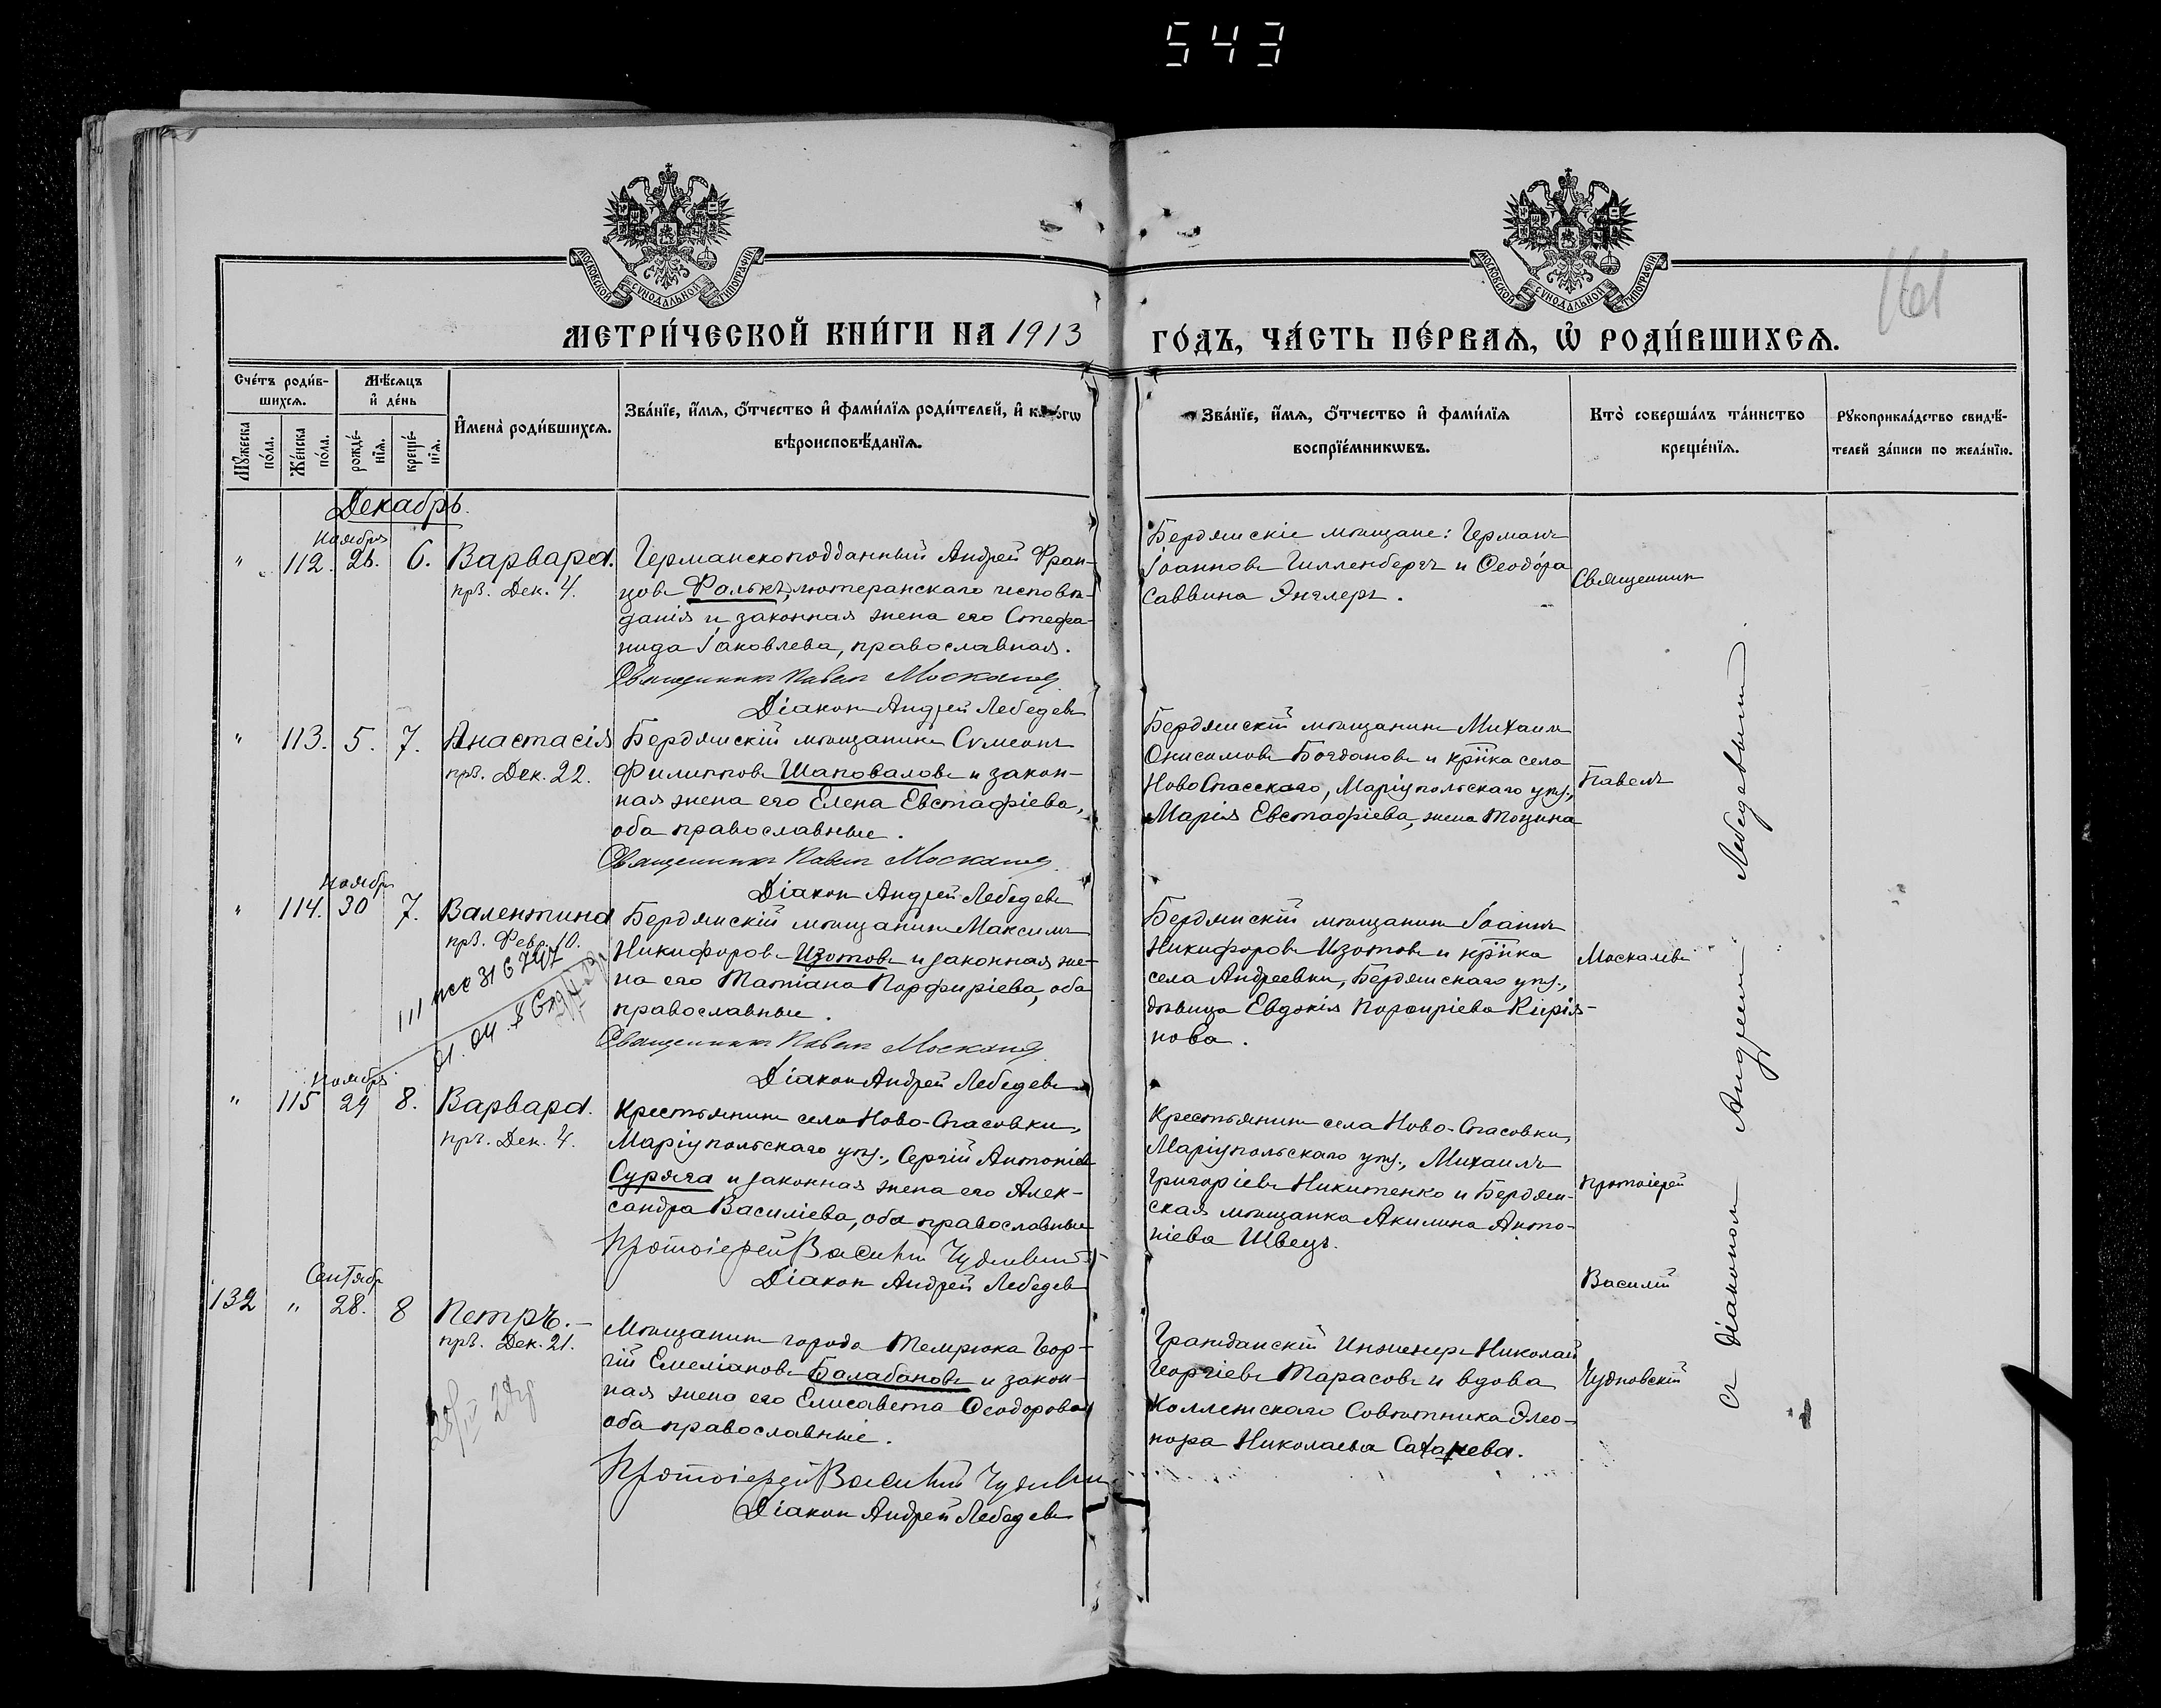 543
161
МОСКОВСКОЙ СѴНОДАЛЬНОЙ ТИПОГРАФІИ
МОСКОВСКОЙ СѴНОДАЛЬНОЙ ТИПОГРАФІИ
МЕТРИ́ЧЕСКОЙ КНИ́ГИ НА 1913
ГО́ДЪ, ЧА́СТЬ ПЕ́РВАѦ, Ѡ҆ РОДИ́ВШИХСѦ.
Сче́тъ роди́в-
шихсѧ.
Мꙋ́жеска
по́ла.
Же́нска
по́ла.
Мѣ́сѧцъ
и҆ де́нь
рожде́-
нїѧ.
креще́-
нїѧ.
И҆мена̀ роди́вшихсѧ.
Зва́нїе, и҆́мѧ, ѻ҆́тчество и҆ фами́лїѧ роди́телей, и҆ как.огѡ
вѣроисповѣ́данїѧ.
Зва́нїе, и҆́мѧ, ѻ҆́тчество и҆ фами́лїѧ
воспрїе́мникѡвъ.
Кто̀ соверша́лъ та́инство
креще́нїѧ.
Рꙋкоприкла́дство свидѣ́-
телей за́писи по жела́нїю.
Декабрь.
Ноября
" 112. 26. 6. Варвара.
прз. Дек. 4.
Германскоподданный Андрей Фран-
цовъ Фалькъ, лютеранскаго исповѣ-
данія и законная жена его Стефа-
нида Іаковлева, православная.
Священникъ Павелъ Москалевъ
Діаконъ Андрей Лебедевъ
Бердянскіе мѣщане: Германъ
Іоанновъ Гилленбергъ и Ѳеодо́ра
Саввина Энглеръ.
Священникъ
" 113. 5. 7. Анастасія
прз. Дек. 22.
Бердянскій мѣщанинъ Сѵмеонъ
Филипповъ Шаповаловъ и закон-
ная жена его Елена Евстафіева,
оба православные.
Священникъ Павелъ Москалевъ
Діаконъ Андрей Лебедевъ
Бердянскій мѣщанинъ Михаилъ
Онисимовъ Богдановъ и кр̄ка села
НовоСпасскаго, Маріупольскаго уѣз.,
Марія Евстафіева, жена Тоцина
Павелъ
Ноября
" 114. 30 7. Валентина
прз. Фев. 10.
Бердянскій мѣщанинъ Максимъ
Никифоровъ Изотовъ и законная же-
на его Татіана Порфиріева, оба
православные.
Священникъ Павелъ Москалевъ
Діаконъ Андрей Лебедевъ
Бердянскій мѣщанинъ Іоаннъ
Никифоровъ Изотовъ и кр̄ка
села Андреевки, Бердянскаго уѣз.,
дѣвица Евдокія Порфиріева Кирія-
нова.
Москалевъ
Ноября
" 115 29 8. Варвара.
прз. Дек. 4.
Крестьянинъ села Ново-Спасовки,
Маріупольскаго уѣз., Сергій Антоніевъ
Суряга и законная жена его Алек-
сандра Василіева, оба православные
Протоіерей Василій Чудновскій
Діаконъ Андрей Лебедевъ
Крестьянинъ села Ново-Спасовки,
Маріупольскаго уѣз., Михаилъ
Григоріевъ Никитенко и Бердян-
ская мѣщанка Акилина Анто-
ніева Швецъ.
Протоіерей
Василій
Сентябр
132 " 28. 8 Петръ.-
прз. Дек. 21.
Мѣщанинъ города Темрюка Геор-
гій Емеліановъ Балабановъ и закон-
ная жена его Елисавета Ѳеодорова
оба православные.
Протоіерей Василій Чудновскій
Діаконъ Андрей Лебедевъ
Гражданскій Инженеръ Николай
Георгіевъ Тарасовъ и вдова
Коллежскаго Совѣтника Элео-
нора Николаева Сатанева.
Чудновскій
съ Діакономъ Андреемъ Лебедевымъ